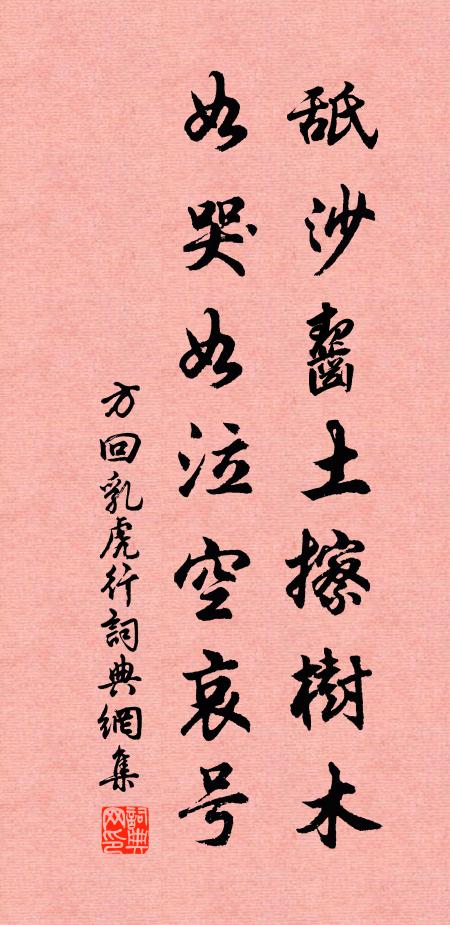 舐沙齧土擦樹木
如哭如泣空哀号
方回乳虎行詞典網集
詞典网印